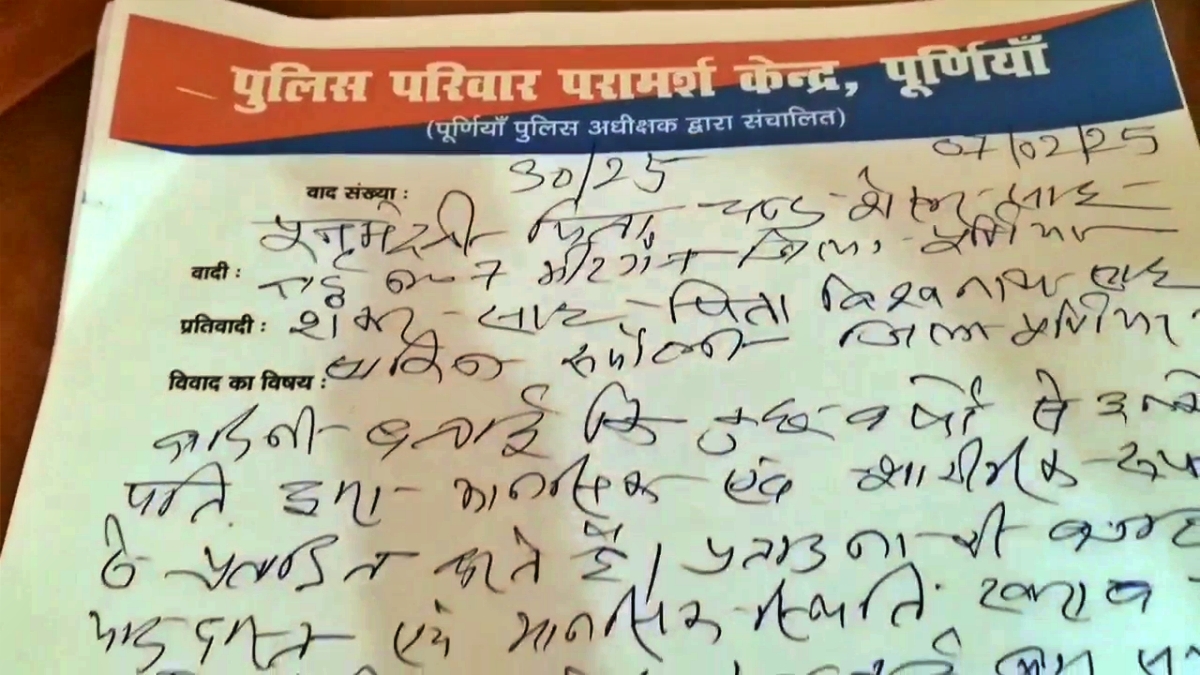 पुलिस परिवार परामर्श केन्द्र, पूर्णियाँ
(पूर्णियाँ पुलिस अधीक्षक द्वारा संचालित)
07/02/25
वाद संख्या : 30/25
पिता शेखर साह
वादी : 7 मीरगंज जिला पूर्णिया
प्रतिवादी : शंकर साह पिता विश्वनाथ साह
रूपौली जिला पूर्णिया
विवाद का विषय :
बताई कि कुछ वर्षो से इनके
पति द्वारा मानसिक एवं शारीरिक रूप
से प्रताड़ित करते हैं। प्रताड़ना की वजह
याददास्त एवं मानसिक स्थिति खराब